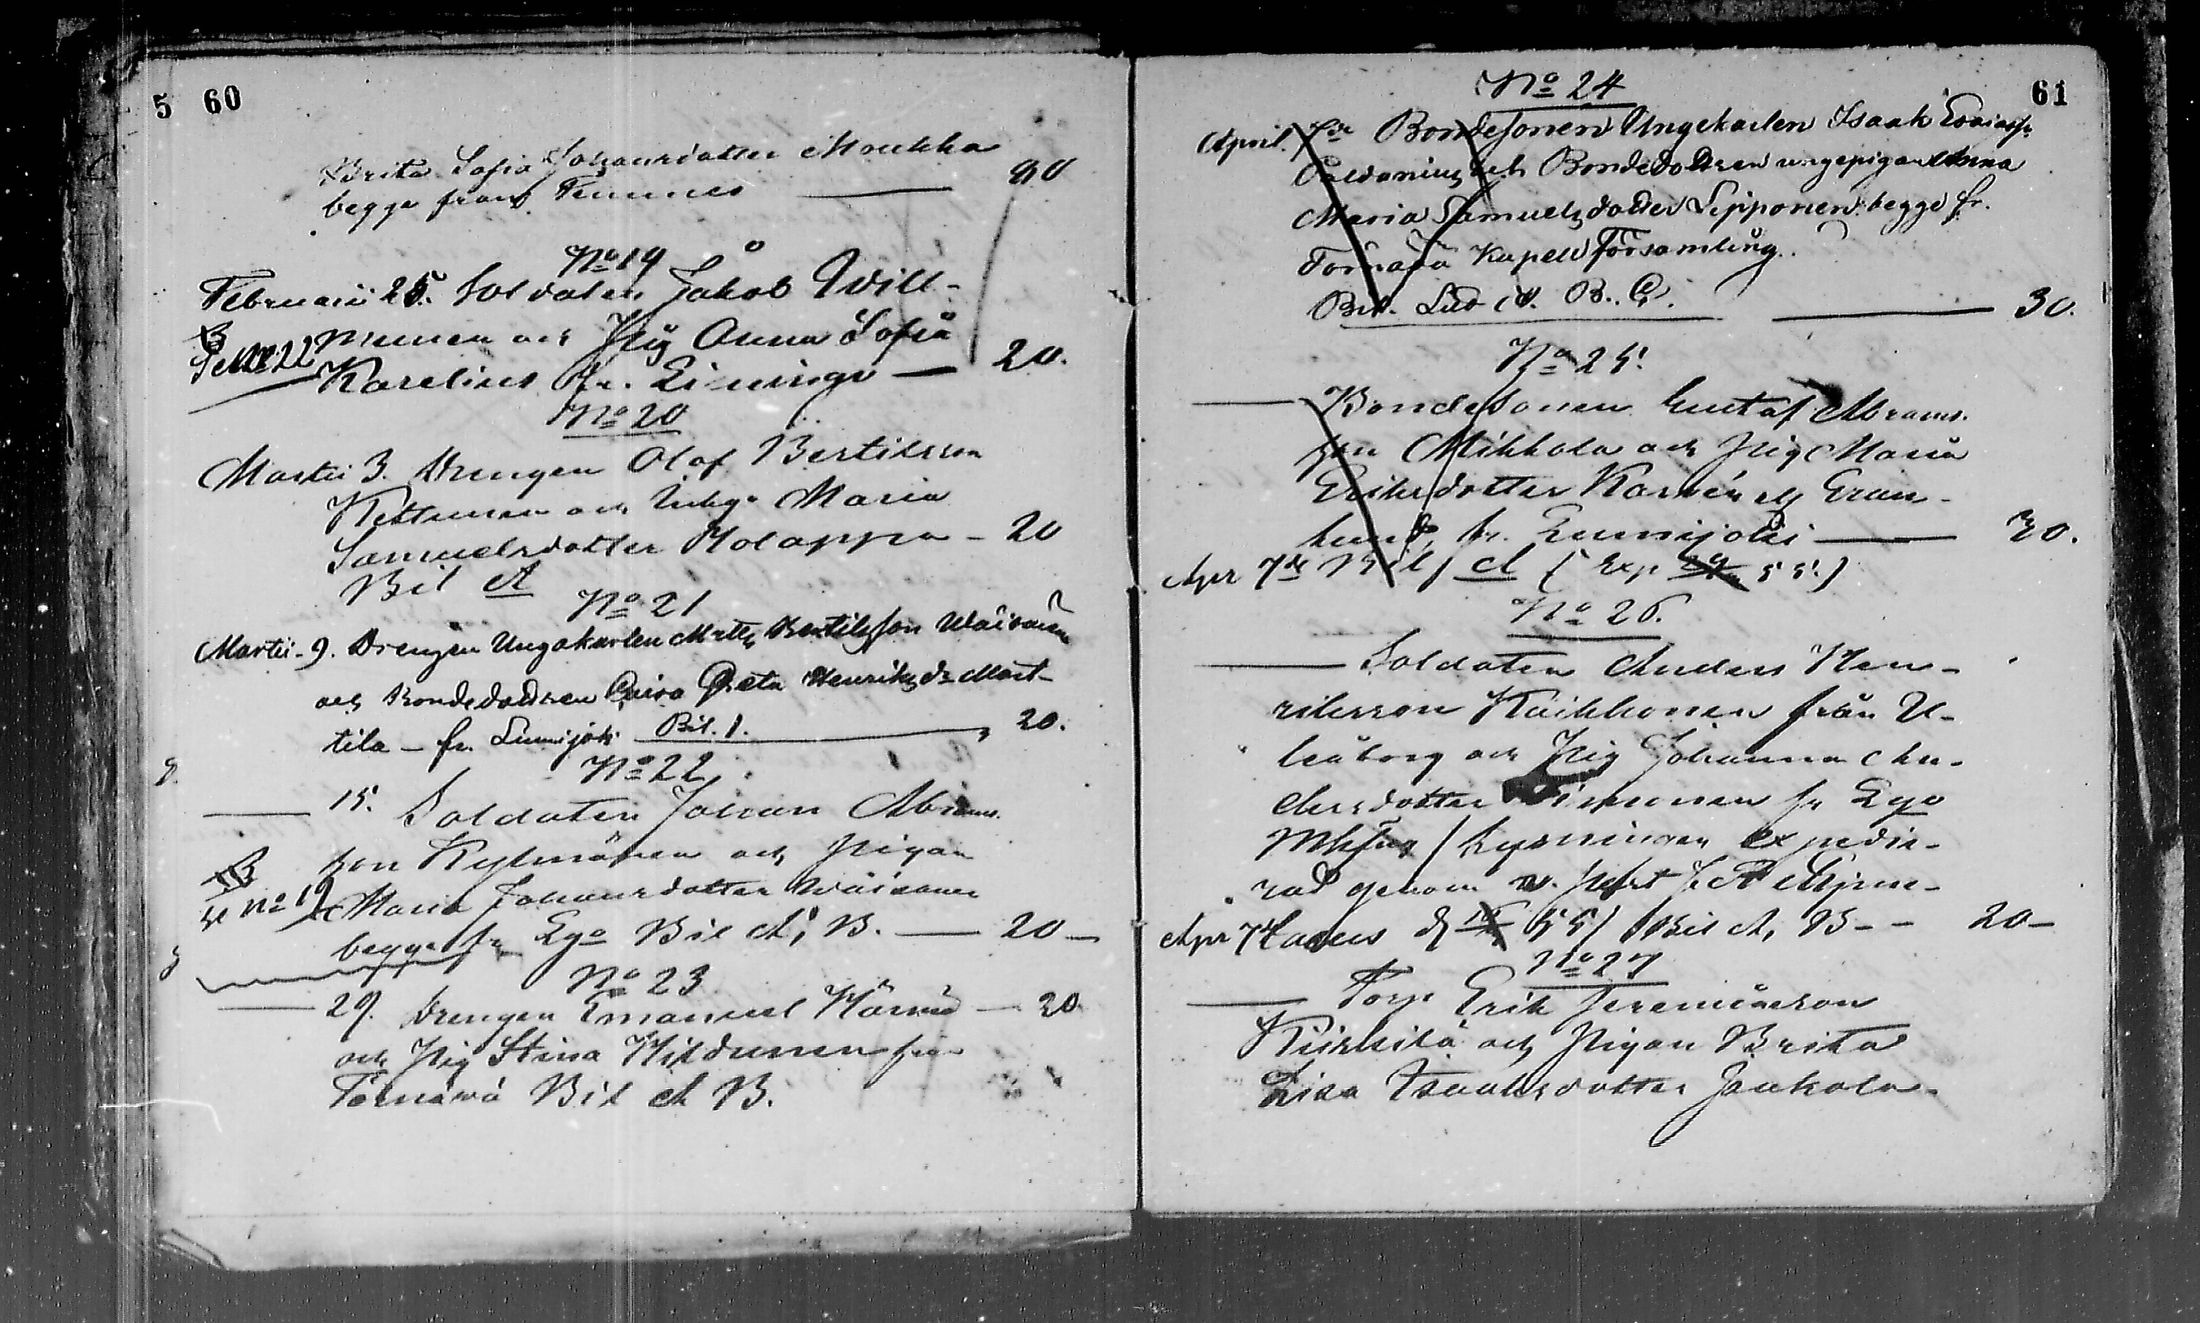 5 60
Brita Sofia Johansdotter Moukka
begge från Temmes — 20
No 19
Februarii 25. Soldaten Jakob Will-
munen och Pig Anna Sofia
Se No 22
Karelius fr. Limingo — 20.
No 20
Martii 3. Drengen Olof Bertilsson
Kettunen och Maria
Samuelsdotter Holappa – 20
Bil A
No 21
Martii. 9. Drengen Ungakarlen Matts Bertilsson Wäisänen
och Bondedottren Caisa Greta Henriksdr Mart-
tila – fr. Lumijoki Bil. 1. — 20.
No 22
— 15. Soldaten Johan Abrams.
son Kylmänen och Pigan
Se No 19
Maria Johansdotter Wäisänen
begge fr Lgo Bil A, B. — 20 —
No 23
— 29. Drengen Emanuel Härmä — 20
och Pig Stina Hildunen från
Ternäwä Bil A B.
61
No 24
April. 7de Bondesonen Ungekarlen Isaak Esaiass.
och Bondedottren ungepigan Anna
Maria Samuelsdotter Lipponen begge fr.
Tornävä Kapellförsamling.
Bil. Lud A. B. C. — 30.
No 25.
— Bondesonen Gustaf Abrams.
son Mikkola och Pig Maria
Eriksdotter Gran-
lund, fr. Lumijoki — 30.
Apr 7de Bil A (Exp 55.)
No 26.
— Soldaten Anders Hen-
riksson Kaikkonen från U-
leåborg och Pig Johanna An-
dersdotter Simonen fr Lgo
/ Lysningen expedie-
rad genom
Apr 7 55/ Bil A, B – – 20 –
No 27
— Torp Erik Jeremiasson
Kiiskilä och Pigan Brita
Lisa Isaaksdotter Jaakola